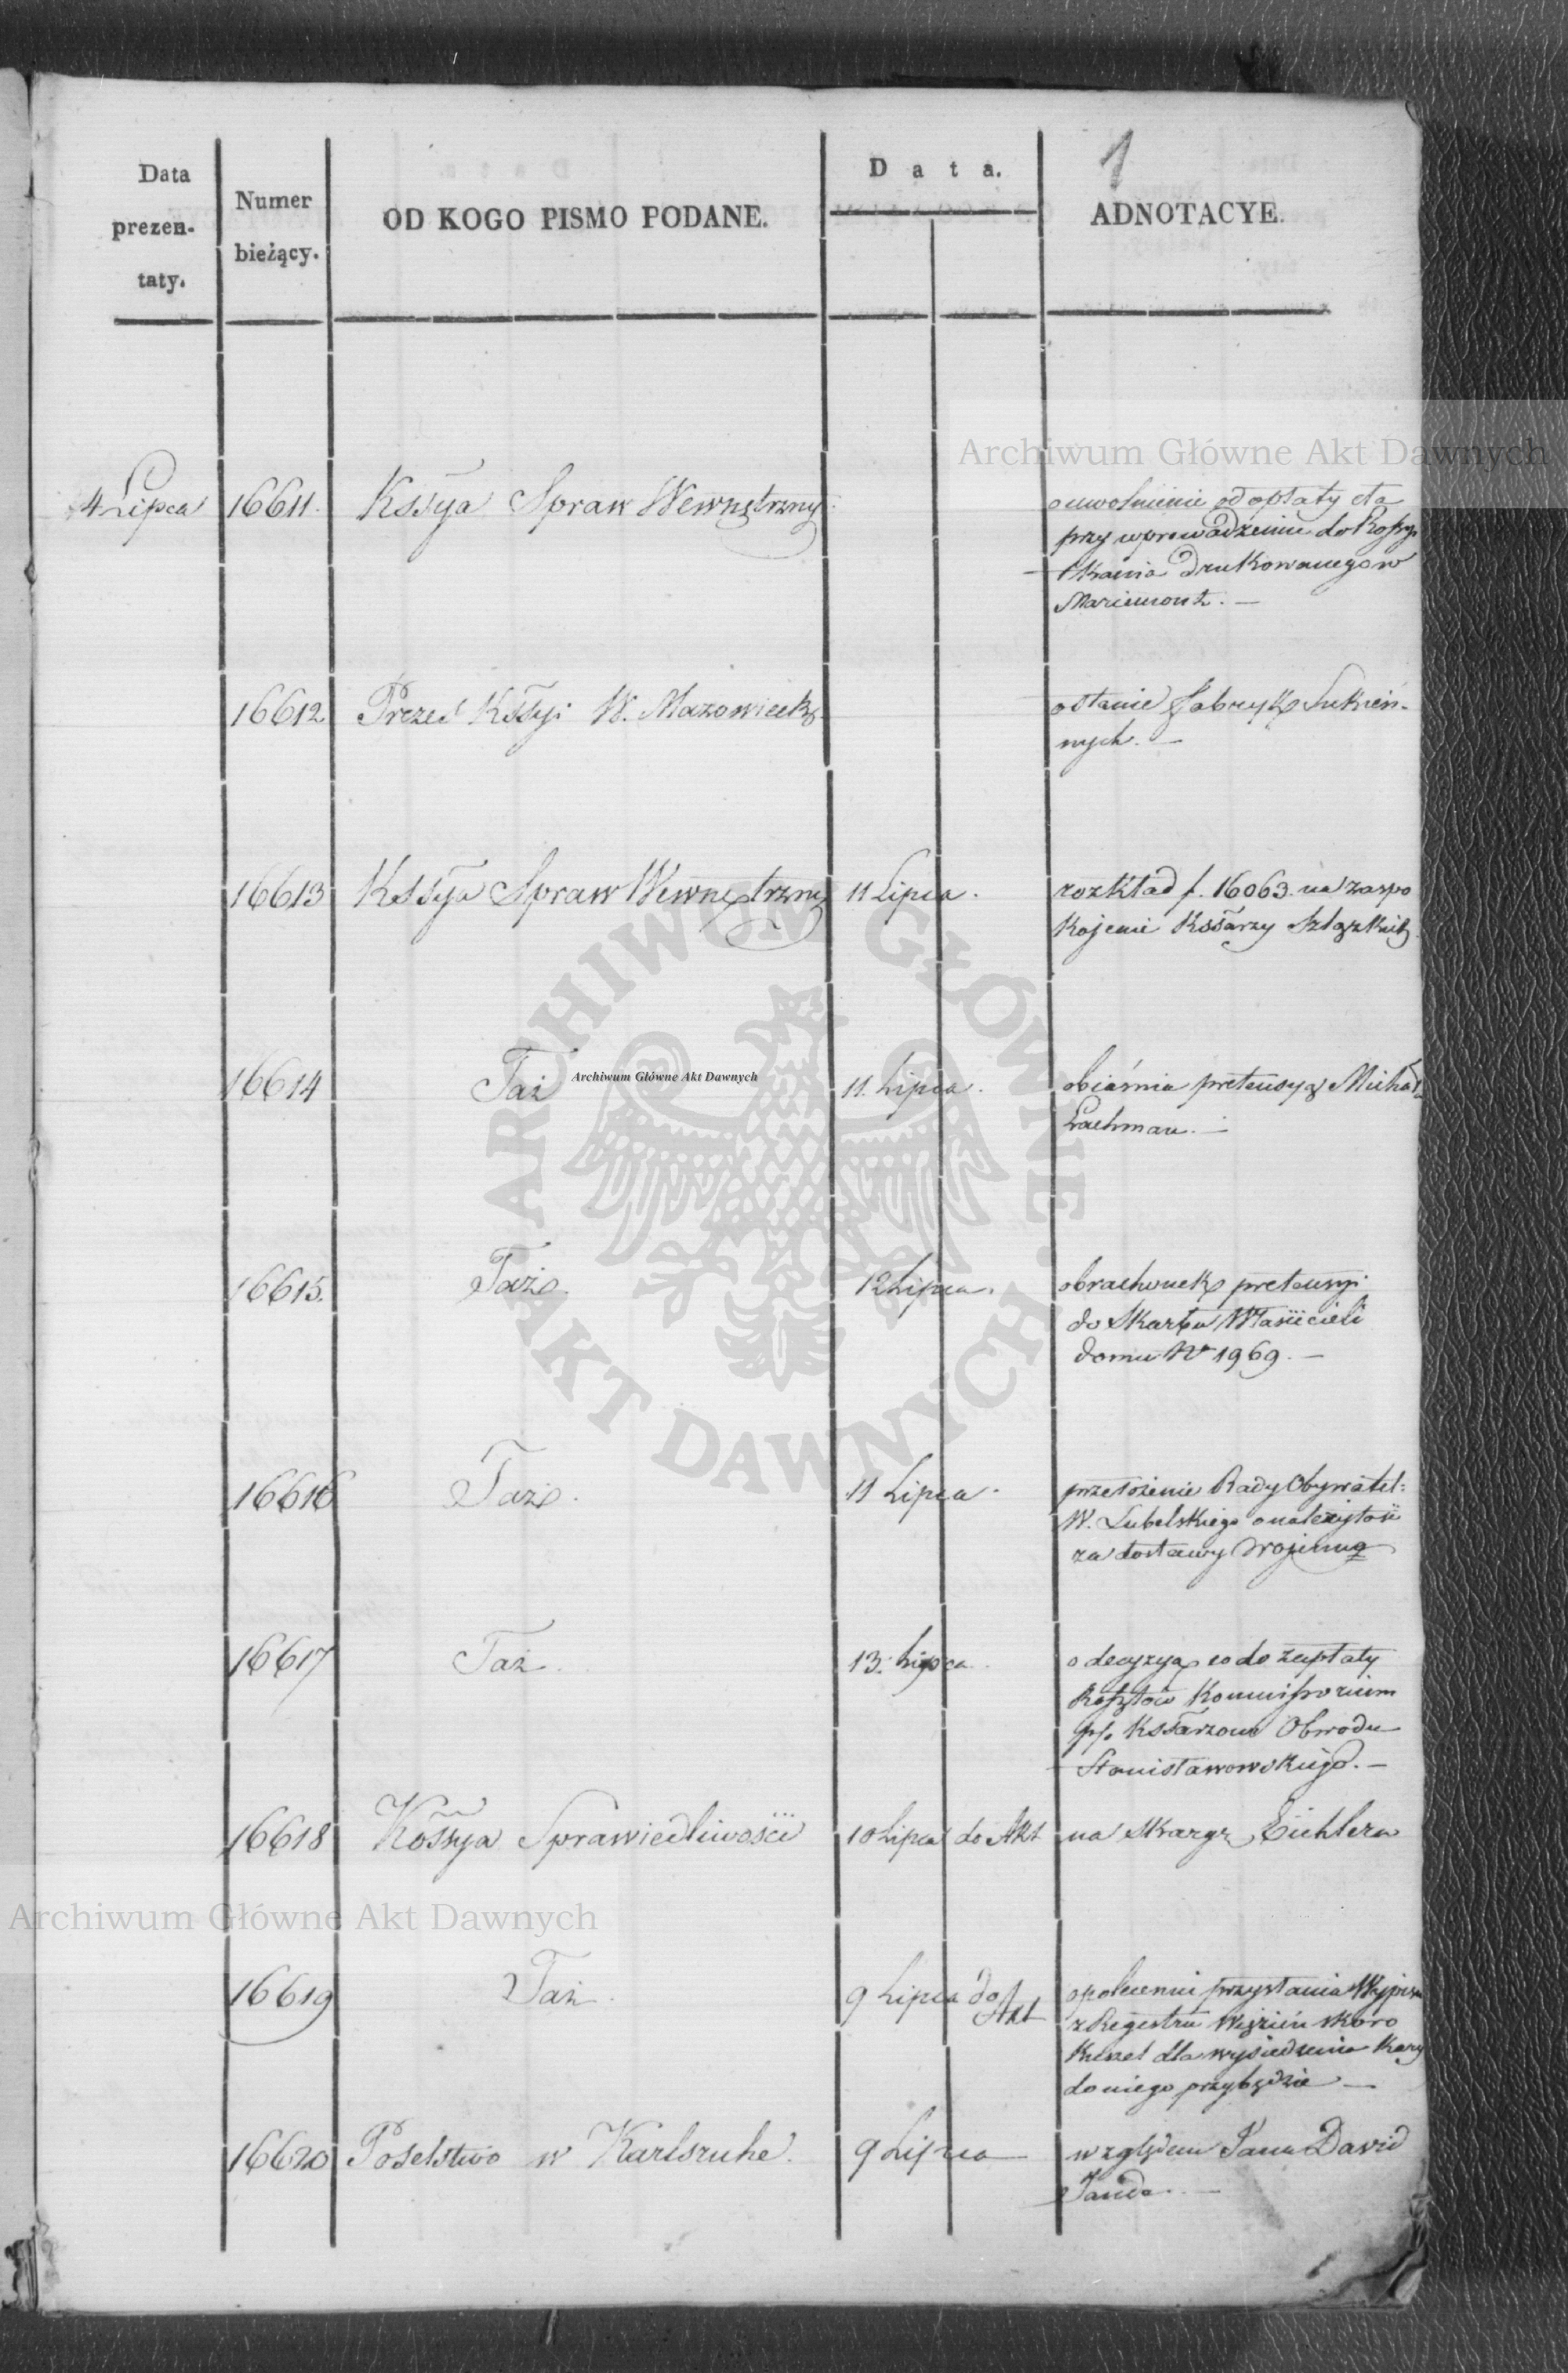 1
Data prezen- taty.
Numer bieżący.
OD KOGO PISMO PODANE.
Data.
ADNOTACYE.
Archiwum Główne Akt Dawnych
4 Lipca 16611. Kssya Spraw Wewnętrzny
o uwolnienie od opłaty cła
przy wprowadzeniu do Rossyi
tkania drukowanego w
Mariemont. —
16612 Prezes Kssyi W. Mazowieck
o stanie Fabryk Sukien-
nych. —
16613 Kssya Spraw Wewnętrzny 11 Lipca.
rozkład f. 16063 na zaspo
kojenie Kssarzy Szląskich
16614 Taż 11. Lipca.
obiaśnia pretensyą Michała
Lachman. —
Archiwum Główne Akt Dawnych
16615. Taż. 12 Lipca.
obrachunek pretensyi
do Skarbu Właścicieli
domu Nr 1969. —
16616 Taż. 11 Lipca.
przełożenie Rady Obywatel:
W. Lubelskiego o należytość
za dostawy
16617 Taż. 13. Lipca.
o decyzyą co do zapłaty
Kosztów Kommissorium
Kssarzowi Obwodu
Stanisławowskiego. —
16618 Kossya Sprawiedliwości 10 Lipca do Akt
na skargę Eichlera
Archiwum Główne Akt Dawnych
16619 Taż. 9 Lipca do Akt
przysłania Wypisu
z Regestru Więzień skoro
dla wysiedzenia Kary
do niego przybędzie —
16620 Poselstwo w Karlsruhe. 9 Lipca
względem Jana Dawid
Janda. —
ARCHIWUM GŁÓWNE AKT DAWNYCH